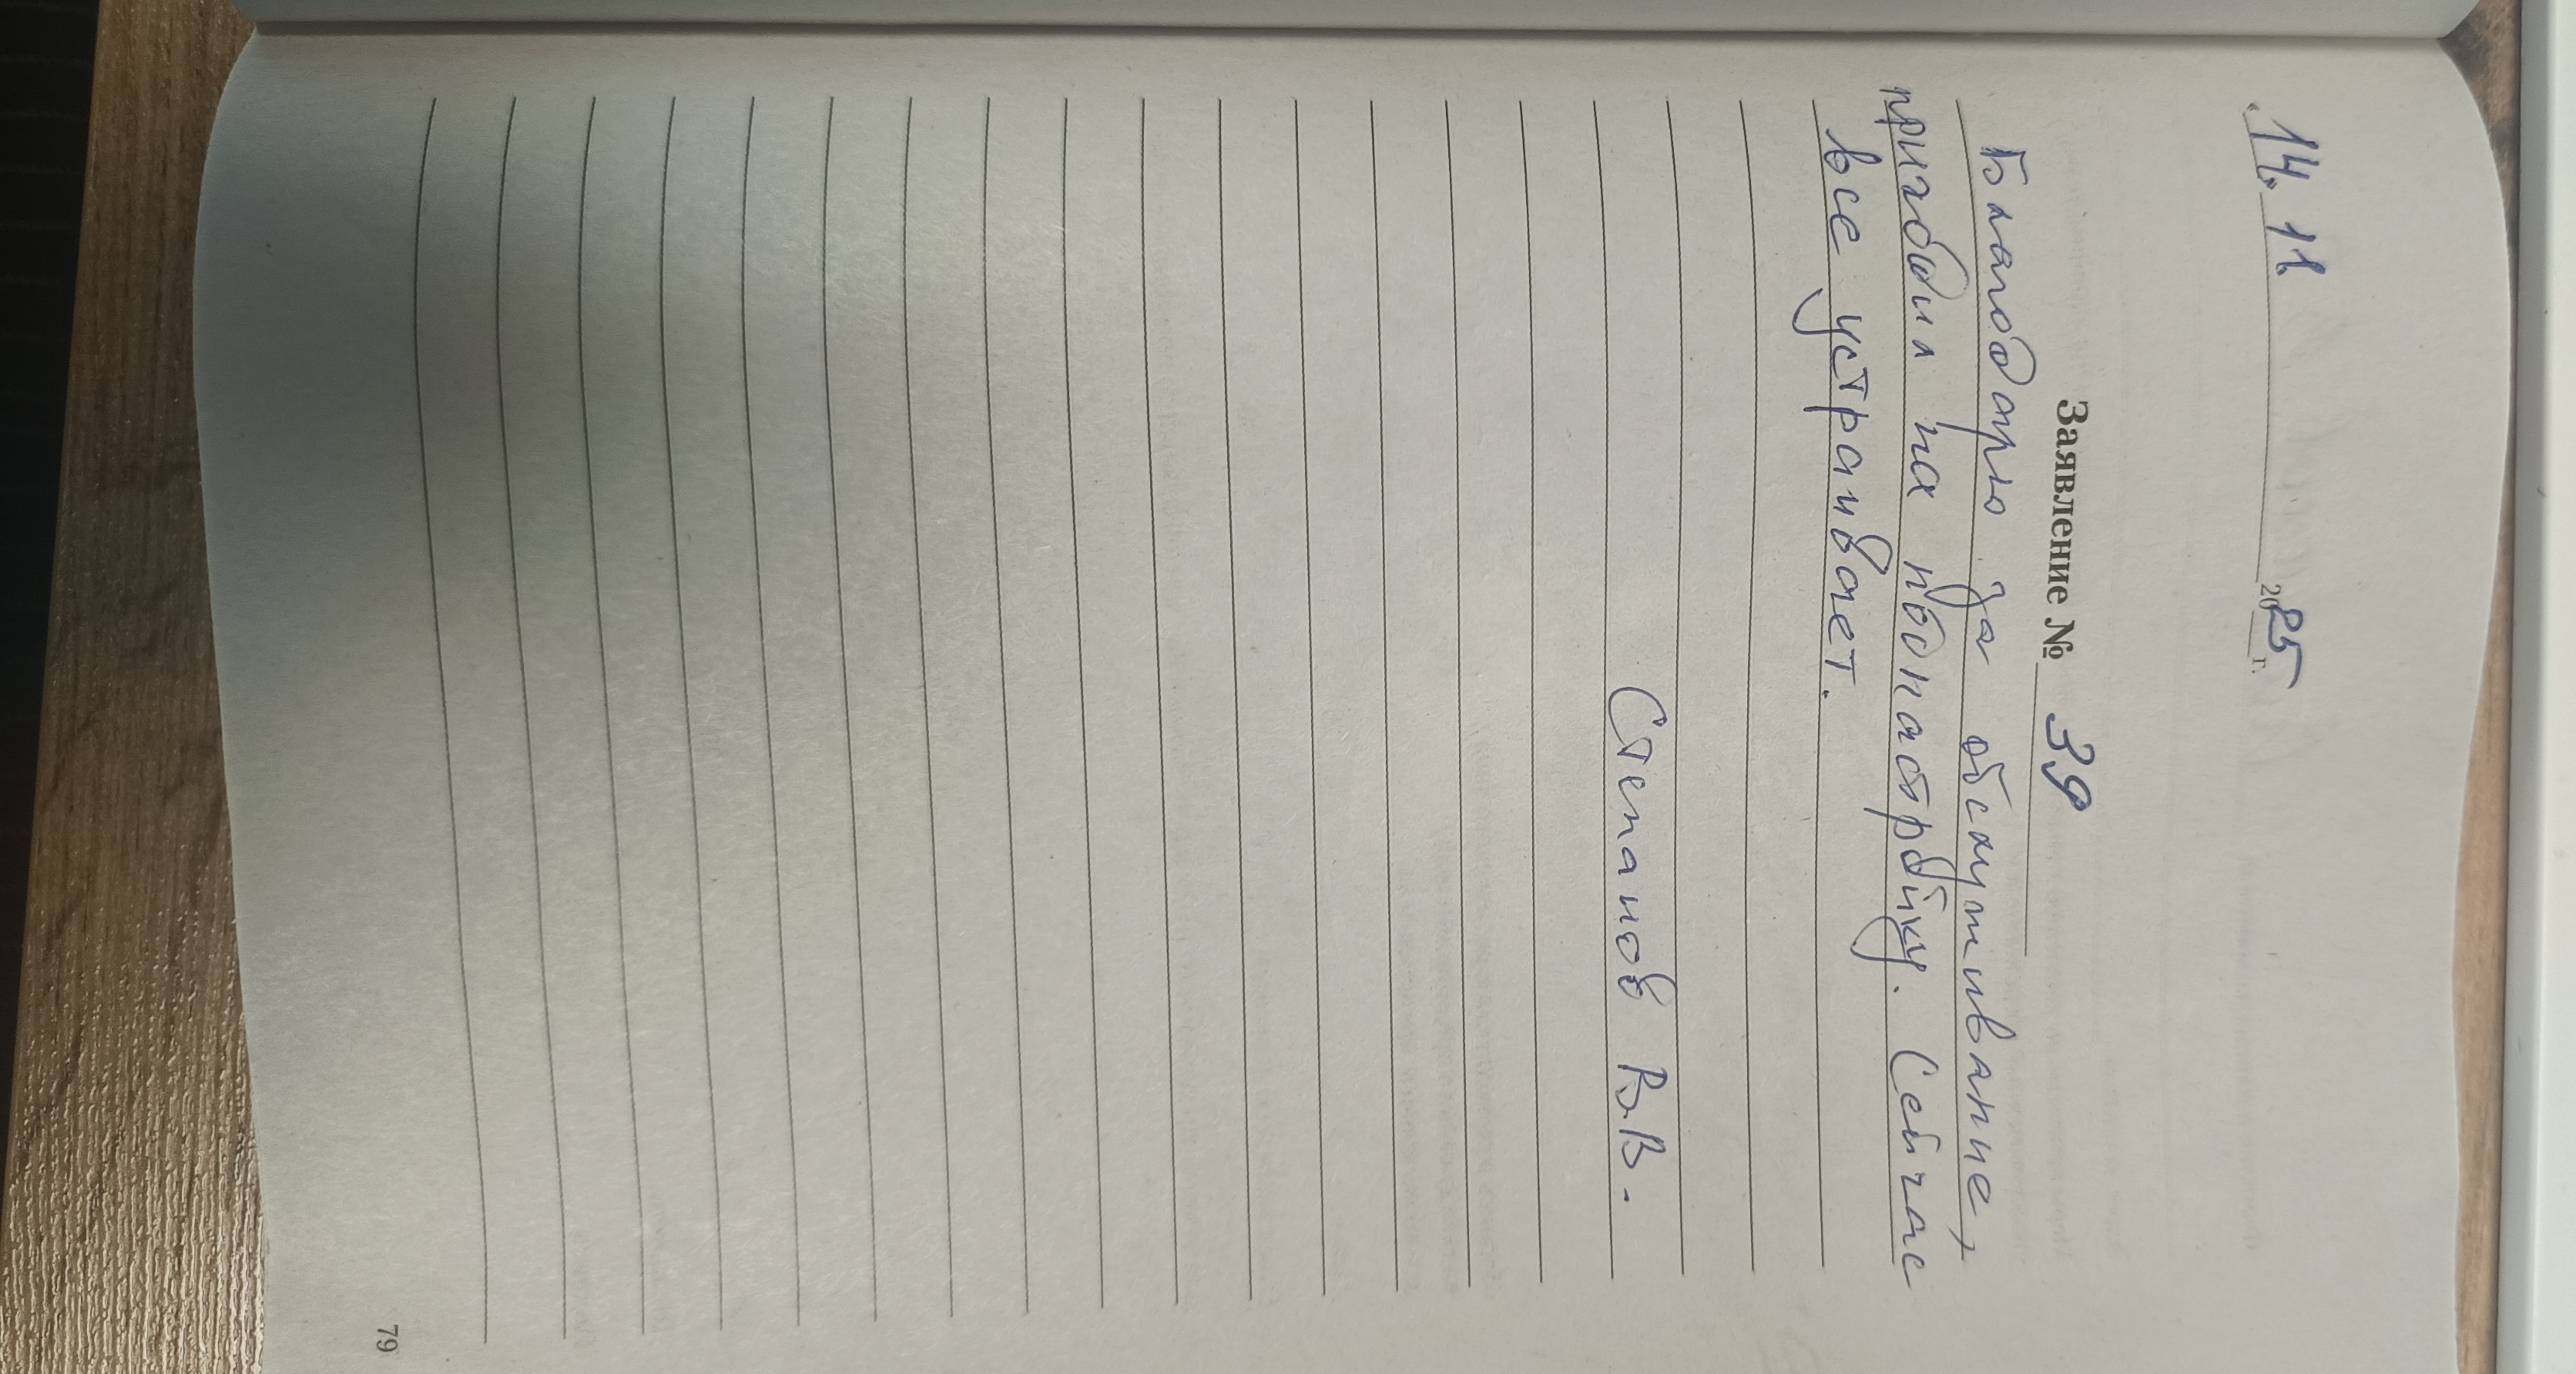 «14» 11. 2025 г.
Заявление № 39
Благодарю за обслуживание,
приходил на поднастройку. Сейчас
все устраивает.
Степанов В.В.
79